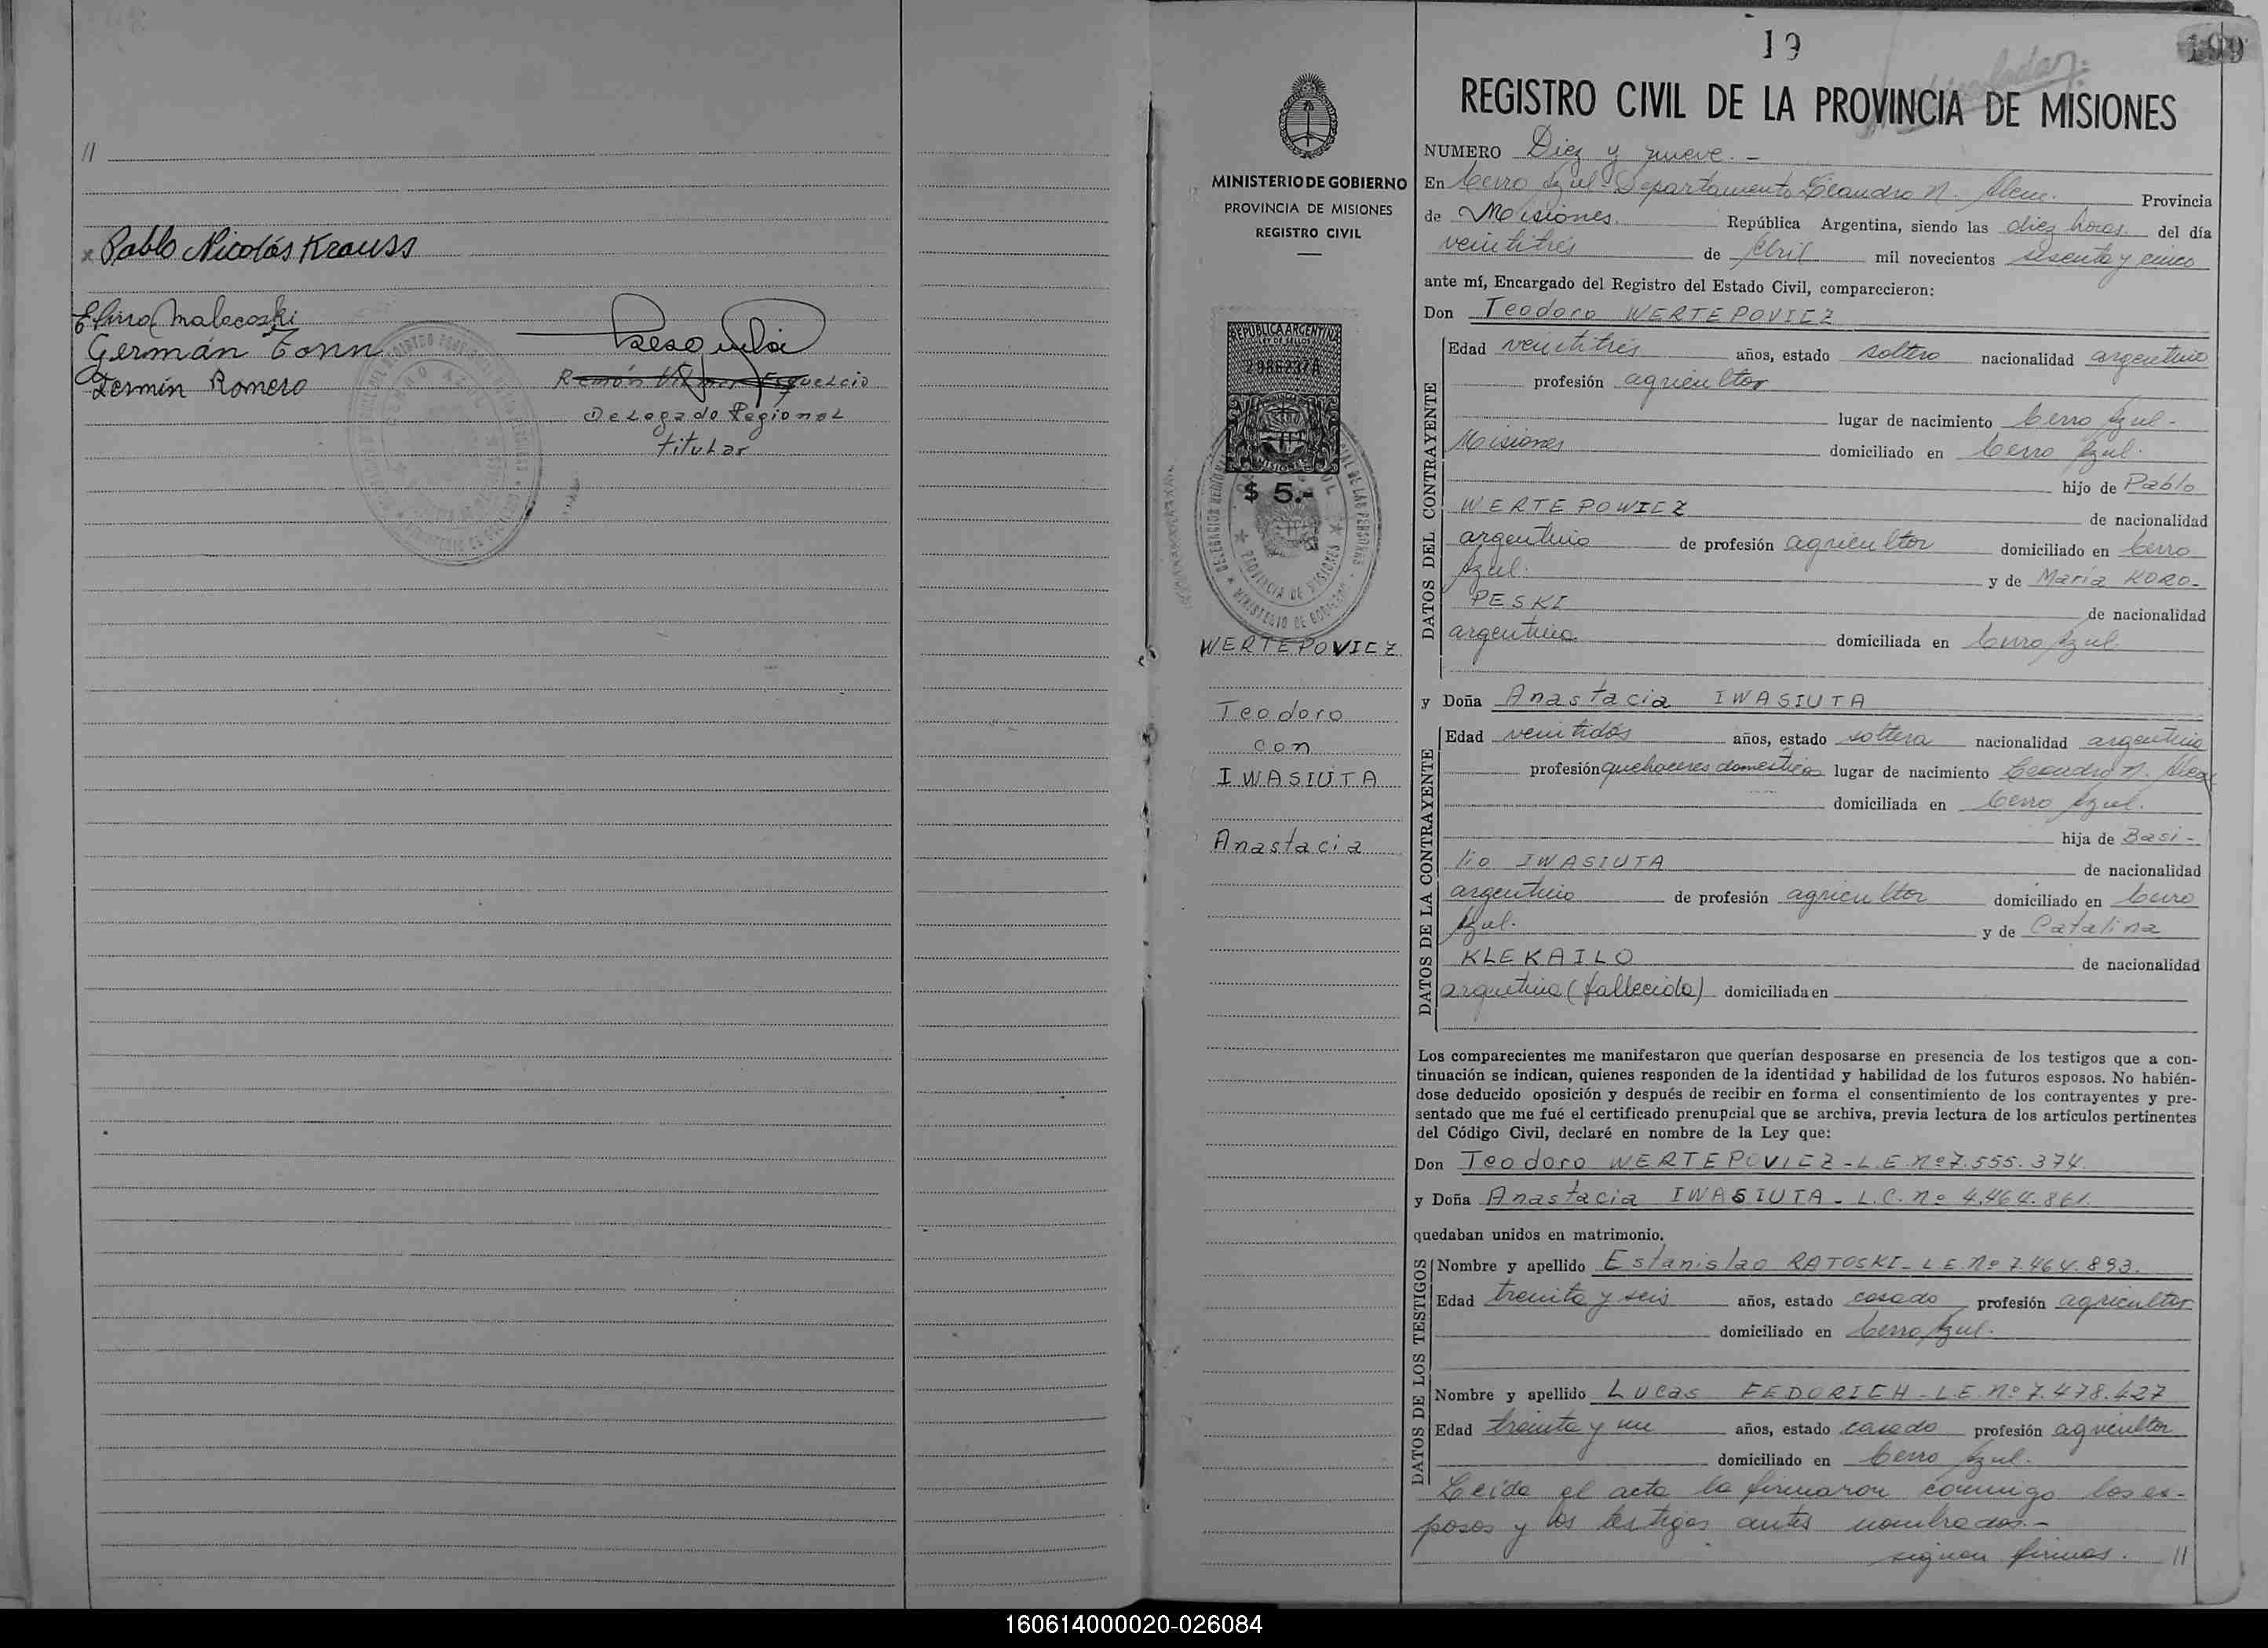 //
x Pablo Nicolás Krauss
Elina Malecoski
Germán Tonn
Fermín Romero
Ramón
Delegado Regional
titular
19
199
REGISTRO CIVIL DE LA PROVINCIA DE MISIONES
MINISTERIO DE GOBIERNO
PROVINCIA DE MISIONES
REGISTRO CIVIL
REPUBLICA ARGENTINA
LEY DE SELLOS
MISIONES
$ 5.-
PROVINCIA DE MISIONES
MINISTERIO DE GOBIERNO
WERTEPOVICZ
Teodoro
con
IWASIUTA
Anastacia
NUMERO Diez y nueve. -
En Cerro Azul - Departamento Leandro N. Alem. Provincia
de Misiones. República Argentina, siendo las diez horas del día
veintitrés de Abril mil novecientos sesenta y cinco
ante mí, Encargado del Registro del Estado Civil, comparecieron:
Don Teodoro WERTEPOVICZ
DATOS DEL CONTRAYENTE
Edad veintitrés años, estado soltero nacionalidad argentino
profesión agricultor
lugar de nacimiento Cerro Azul -
Misiones domiciliado en Cerro Azul.
hijo de Pablo
WERTEPOWICZ de nacionalidad
argentino de profesión agricultor domiciliado en Cerro
Azul. y de María KORO-
PESKI de nacionalidad
argentina domiciliada en Cerro Azul.
y Doña Anastacia IWASIUTA
DATOS DE LA CONTRAYENTE
Edad veintidós años, estado soltera nacionalidad argentina
profesión quehaceres domésticos lugar de nacimiento Leandro N. Alem
domiciliada en Cerro Azul.
hija de Basi-
lio IWASIUTA de nacionalidad
argentino de profesión agricultor domiciliado en Cerro
Azul. y de Catalina
KLEKAILO de nacionalidad
argentina (fallecida) domiciliada en
Los comparecientes me manifestaron que querían desposarse en presencia de los testigos que a con-
tinuación se indican, quienes responden de la identidad y habilidad de los futuros esposos. No habién-
dose deducido oposición y después de recibir en forma el consentimiento de los contrayentes y pre-
sentado que me fué el certificado prenupcial que se archiva, previa lectura de los artículos pertinentes
del Código Civil, declaré en nombre de la Ley que:
Don Teodoro WERTEPOVICZ - L.E. Nº 7.555.374.
y Doña Anastacia IWASIUTA - L.C. nº 4.464.861.
quedaban unidos en matrimonio.
DATOS DE LOS TESTIGOS
Nombre y apellido Estanislao RATOSKI - L.E. Nº 7.464.893.
Edad treinta y seis años, estado casado profesión agricultor
domiciliado en Cerro Azul.
Nombre y apellido Lucas FEDORICH - L.E. Nº 7.478.427
Edad treinta y un años, estado casado profesión agricultor
domiciliado en Cerro Azul.
Leída el acta la firmaron conmigo los es-
posos y los testigos antes nombrados. -
siguen firmas. //
160614000020-026084